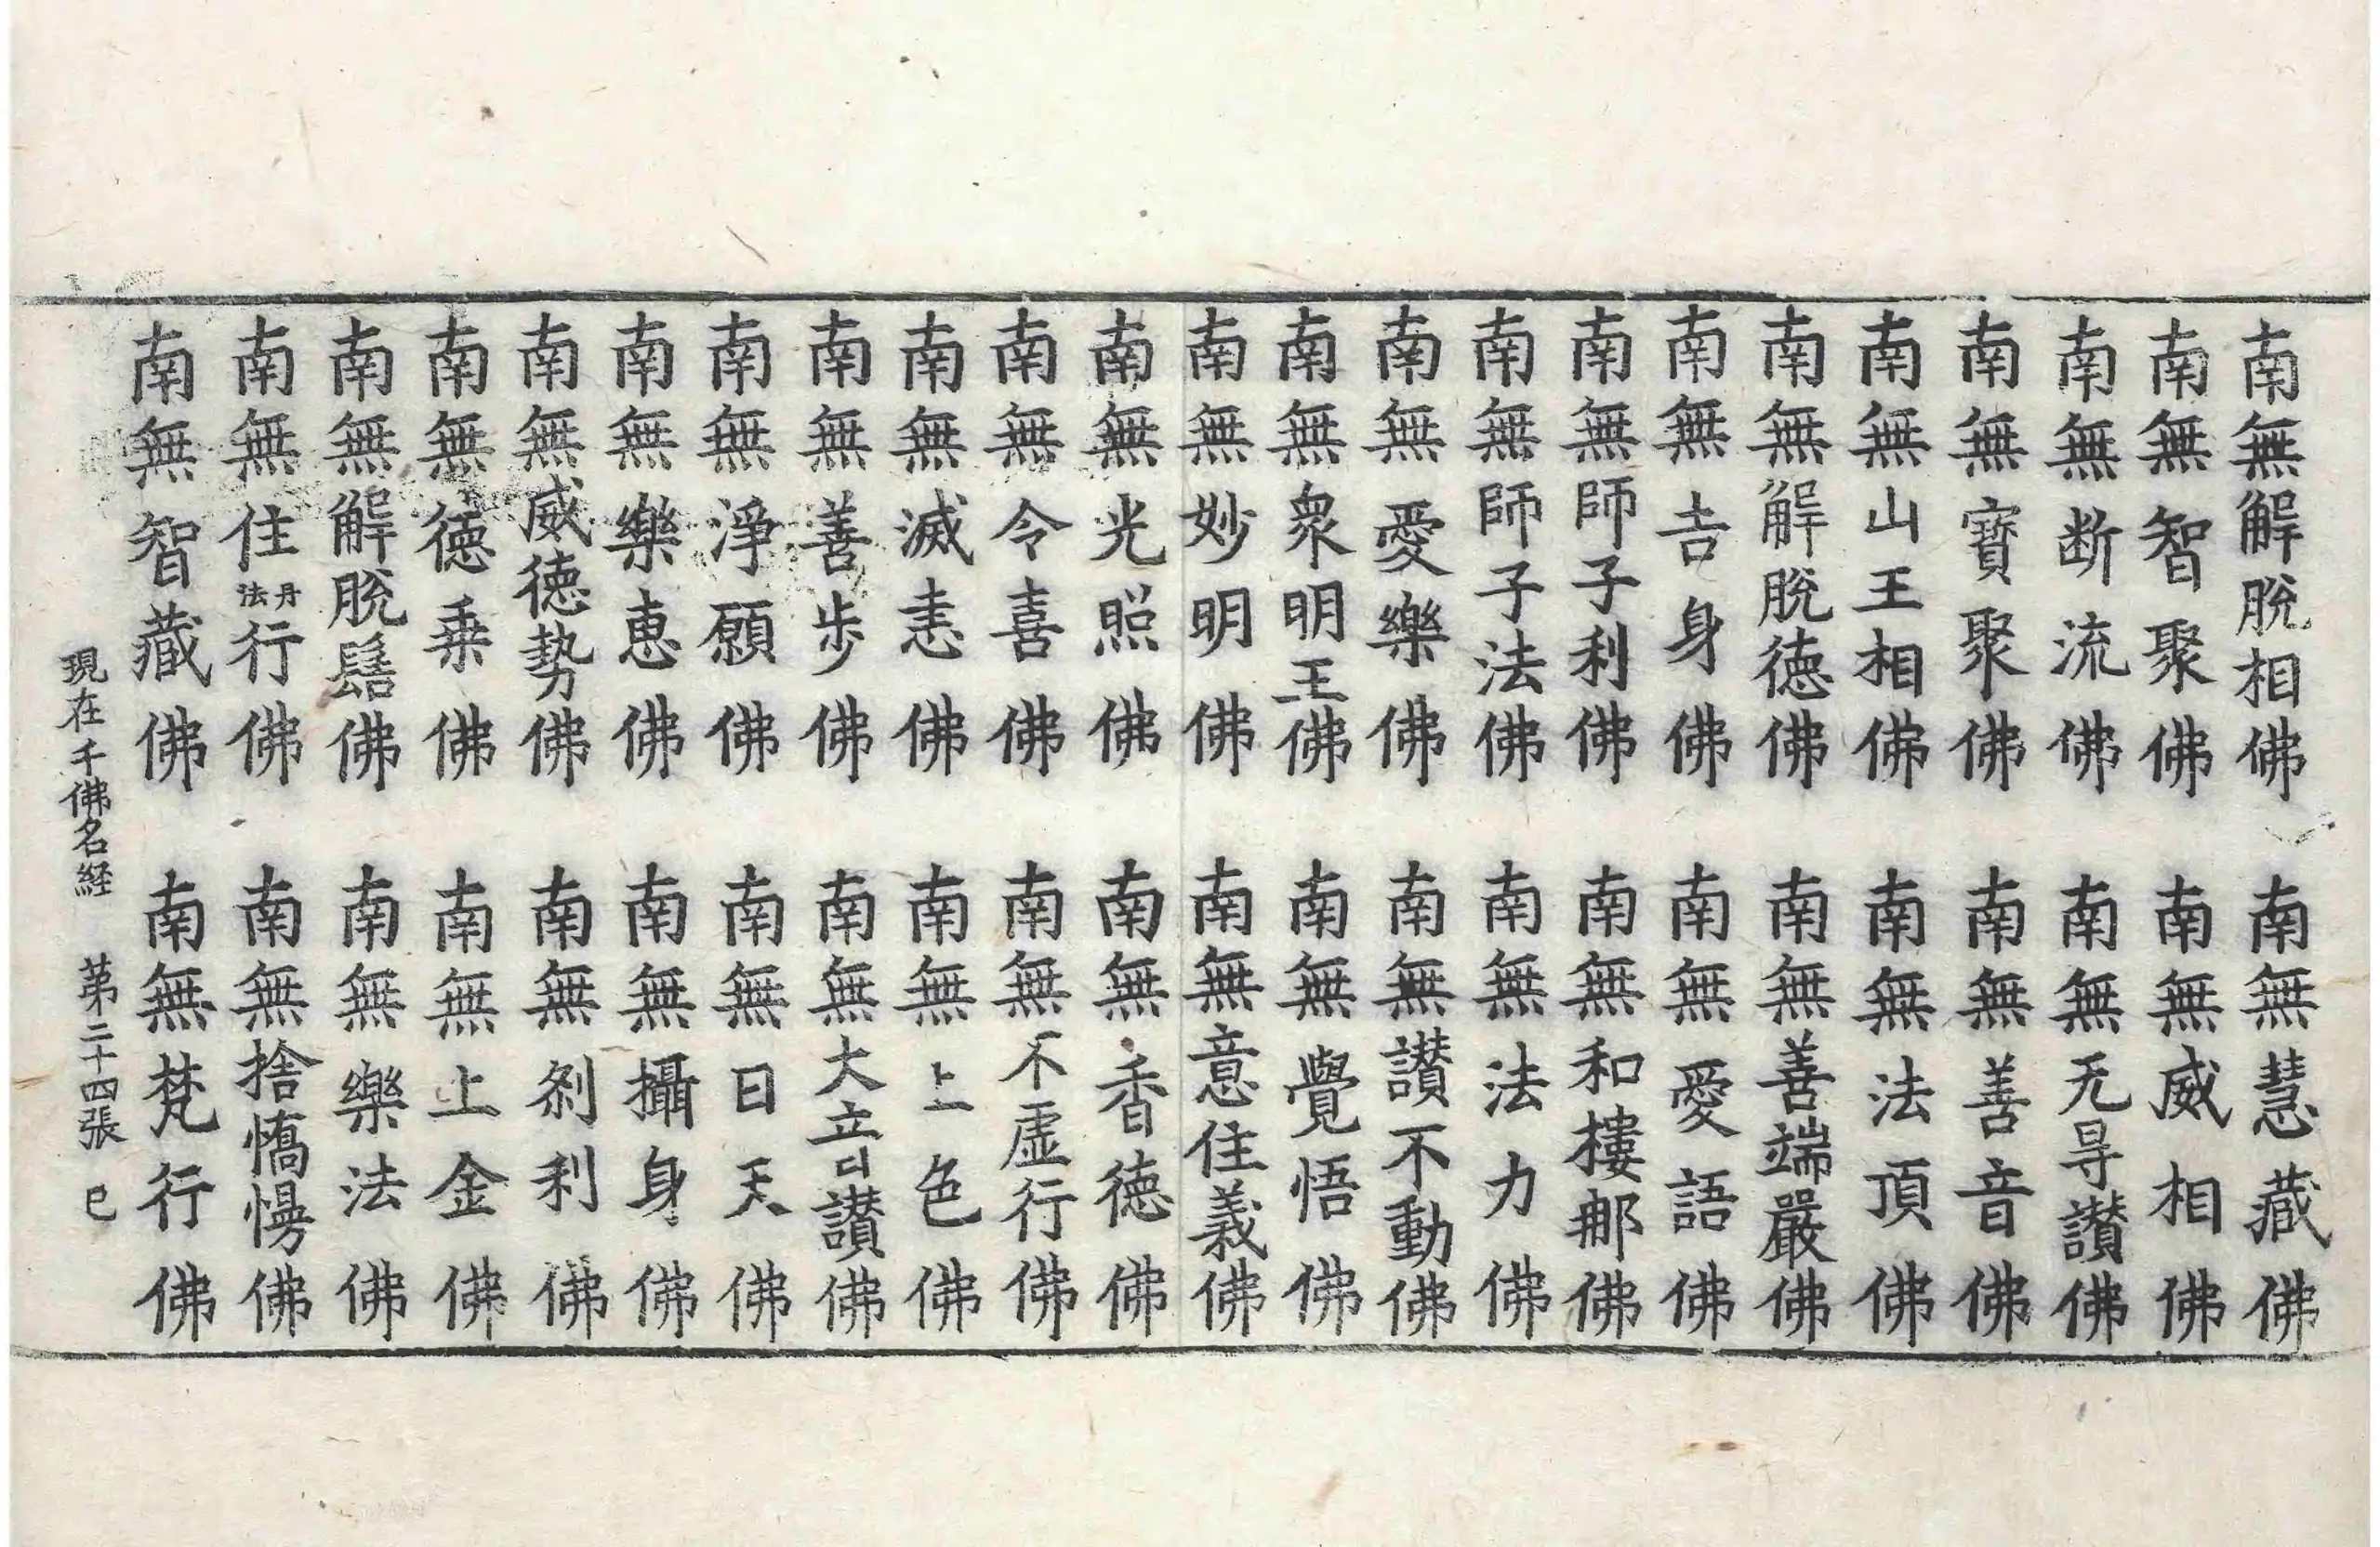 南無解脫相佛　南無慧藏佛
南無智聚佛　南無威相佛
南無断流佛　南無无㝵讃佛
南無寶聚佛　南無善音佛
南無山王相佛　南無法頂佛
南無解脫德佛　南無善端嚴佛
南無吉身佛　南無愛語佛
南無師子利佛　南無和樓那佛
南無師子法佛　南無法力佛
南無愛樂佛　南無讃不動佛
南無衆明王佛　南無覺悟佛
南無妙明佛　南無意住義佛
南無光照佛　南無香德佛
南無令喜佛　南無不虛行佛
南無滅恚佛　南無上色佛
南無善步佛　南無大音讃佛
南無淨願佛　南無日天佛
南無樂恵佛　南無攝身佛
南無威德勢佛　南無刹利佛
南無德乗佛　南無上金佛
南無解脫髻佛　南無樂法佛
南無住丹法行佛　南無捨憍慢佛
南無智藏佛　南無梵行佛
現在千佛名経　苐二十四張　巳